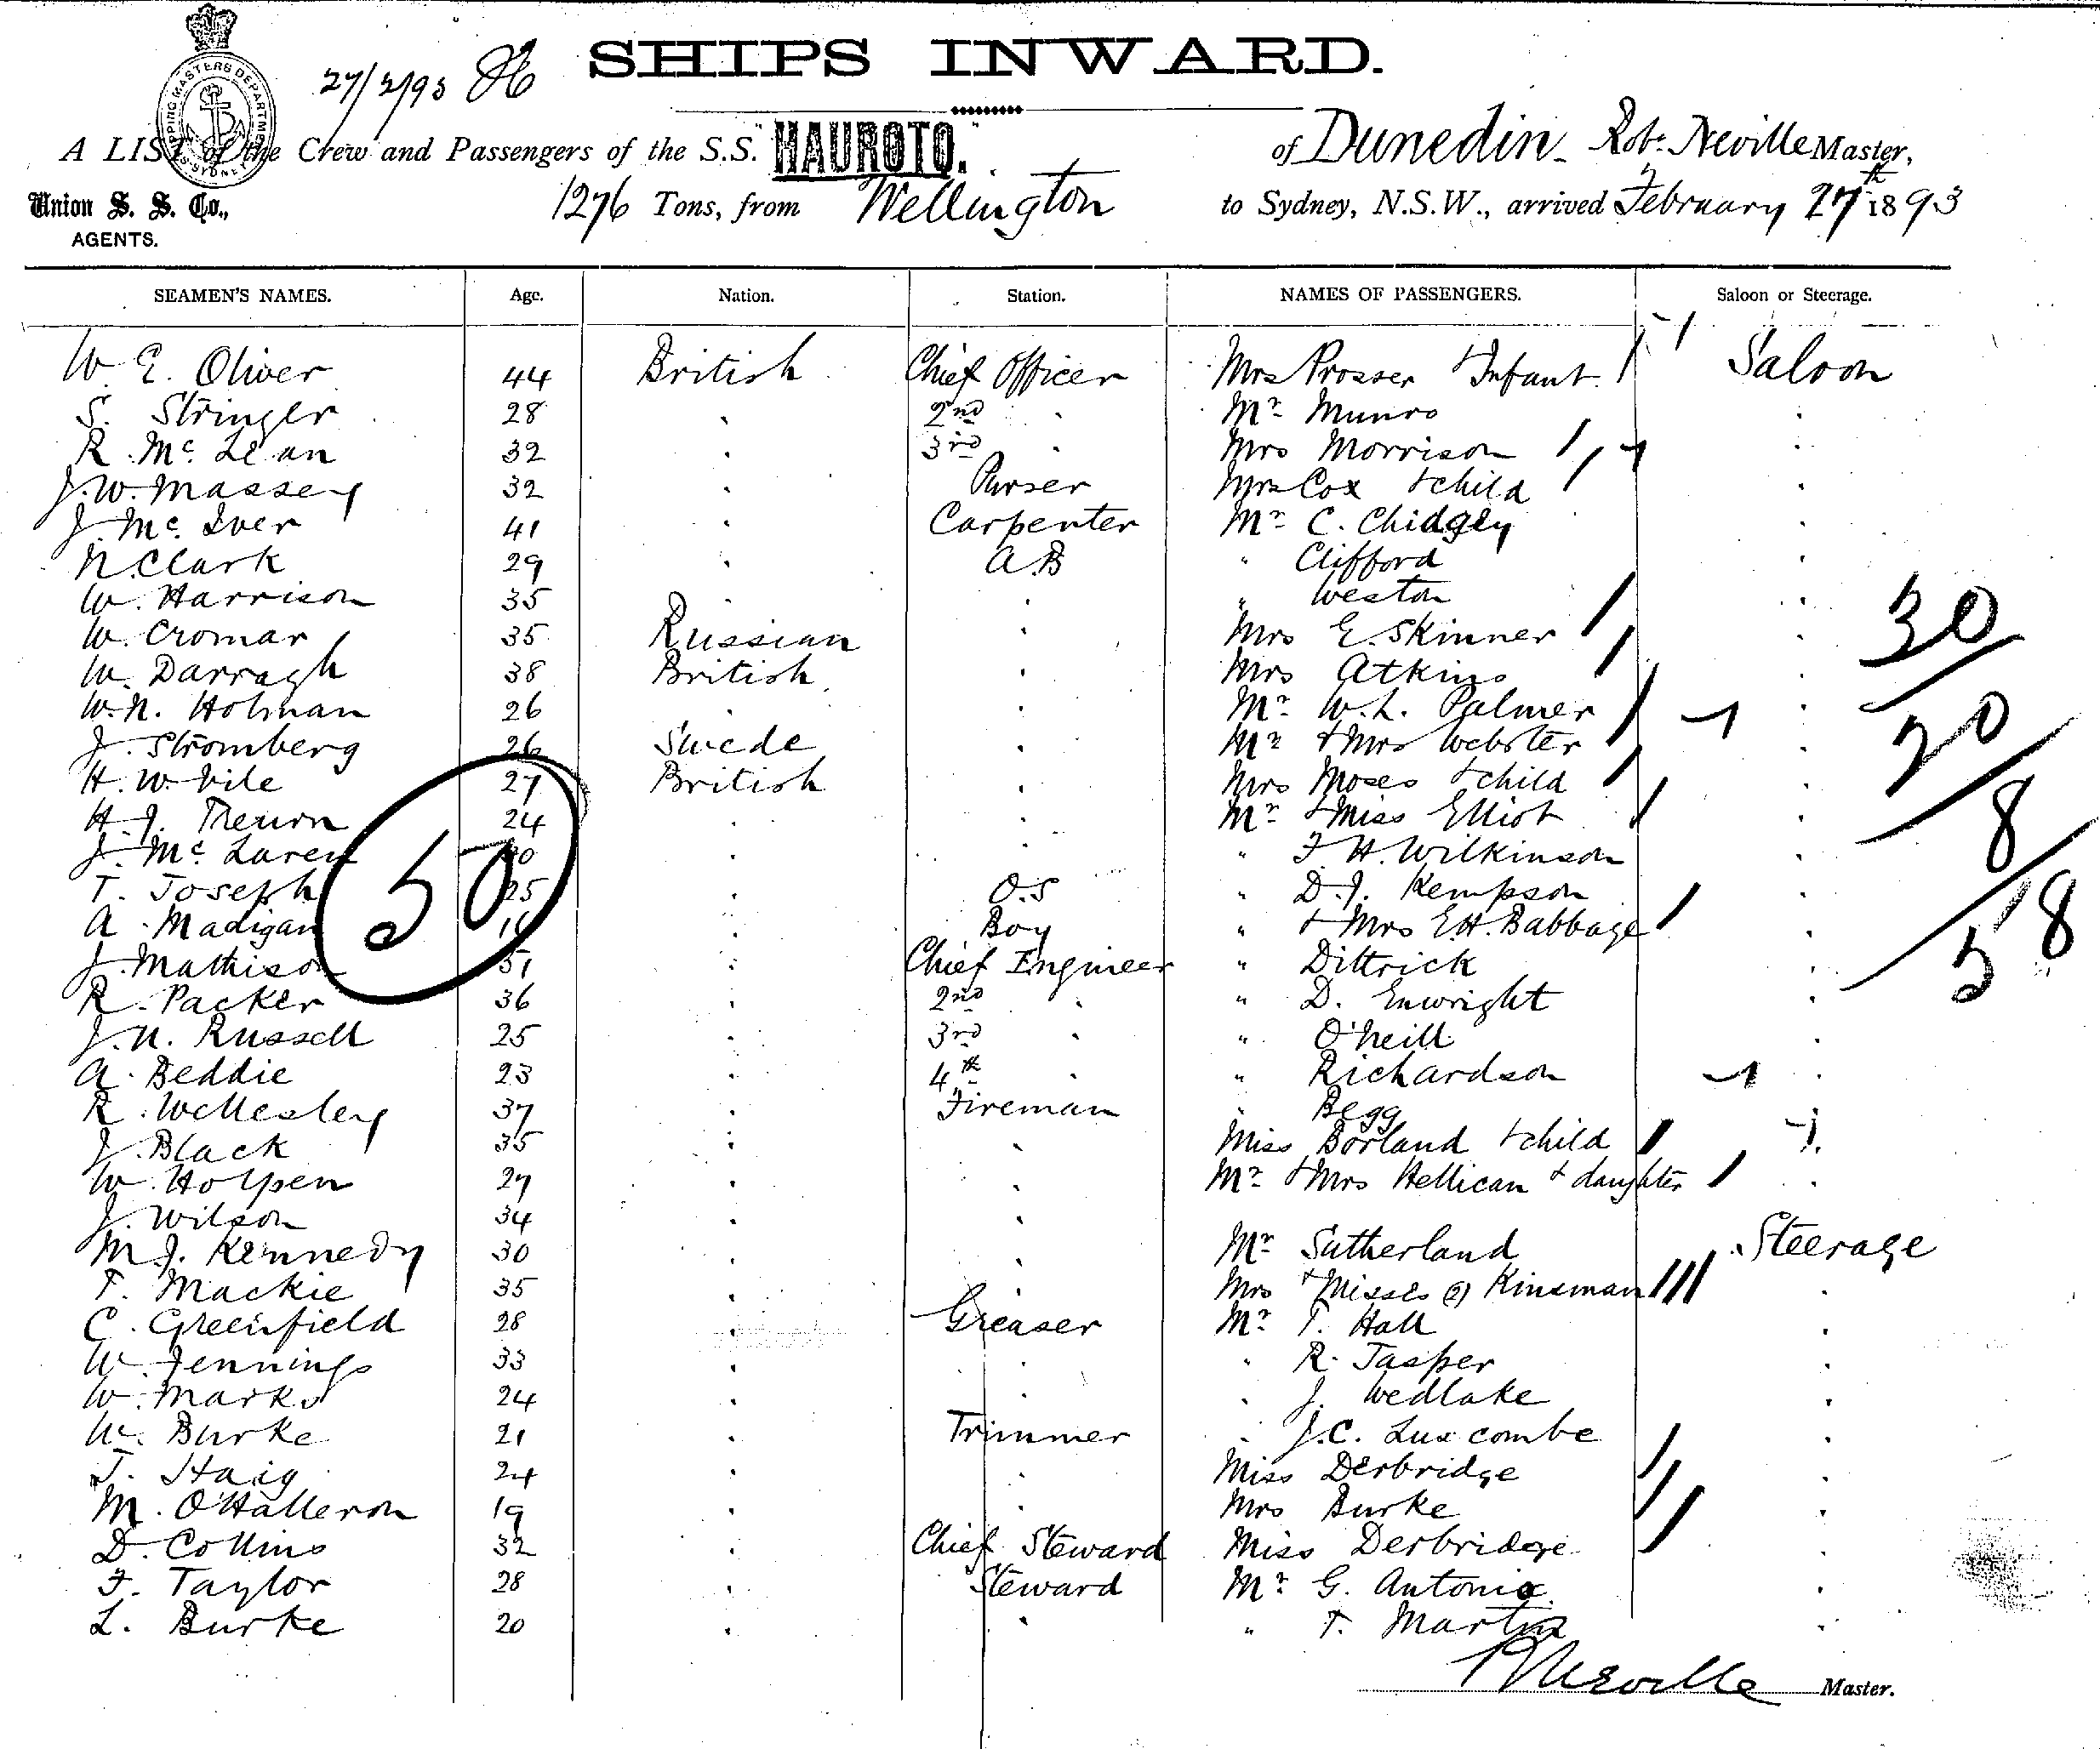 27/2/93
SHIPS INWARD.
SHIPPING MASTERS DEPARTMENT SYDNEY
A LIST of the Crew and Passengers of the S.S. "HAUROTO." of Dunedin Robt. Neville Master,
Union S. S. Co., 1276 Tons, from Wellington to Sydney, N.S.W., arrived February 27th 1893
AGENTS.
SEAMEN'S NAMES. Age. Nation. Station. NAMES OF PASSENGERS. Saloon or Steerage.
W. E. Oliver 44 British Chief Officer Mrs Prosser + Infant Saloon
S. Stringer 28 " 2nd " Mr Munro "
R. Mc. Lean 32 " 3rd " Mrs Morrison "
J. W. Massey 32 " Purser Mrs Cox + child "
J. Mc. Iver 41 " Carpenter Mr C. Chidgey "
N. Clark 29 " A.B " Clifford "
W. Harrison 35 " " " Weston "
W. Cromar 35 Russian " Mrs E. Skinner " 30
W. Darragh 38 British " Mrs Atkins "
W. N. Holman 26 " " Mr W. L. Palmer "
J. Stromberg 26 Swede " Mr + Mrs Webster " 20
H. W. Vile 27 British " Mrs Moses + child "
H. J. 24 " " Mr + Miss Elliot " 8
J. Mc. Laren 30 " " " F. H. Wilkinson "
T. Joseph 25 " O.S " D. J. Kempson "
50
A. Madigan " Boy " + Mrs E. H. Babbage " 58
J. Mathison 51 " Chief Engineer " Dittrick "
R. Packer 36 " 2nd " " D. Enwright "
J. N. Russell 25 " 3rd " " O'Neill "
A. Beddie 23 " 4th " " Richardson "
R. Wellesley 37 " Fireman " Begg
J. Black 35 " " Miss Borland + child "
W. Holpen 27 " " Mr + Mrs Hellican + daughter "
J. Wilson 34 " "
M. J. Kennedy 30 " " Mr Sutherland Steerage
T. Mackie 35 " " Mrs + Misses (2) Kinsman "
C. Greenfield 28 " Greaser Mr T. Hall "
W. Jennings 33 " " " R. Jasper "
W. Marks 24 " " " J. Wedlake "
W. Burke 21 " Trimmer " J. C. Luxcombe "
T. Haig 24 " " Miss Derbridge "
M. O'Halleron 19 " " Mrs Burke "
D. Collins 32 " Chief Steward Miss Derbridge "
F. Taylor 28 " Steward Mr G. Antonio "
L. Burke 20 " " " T. Martin "
R Neville Master.